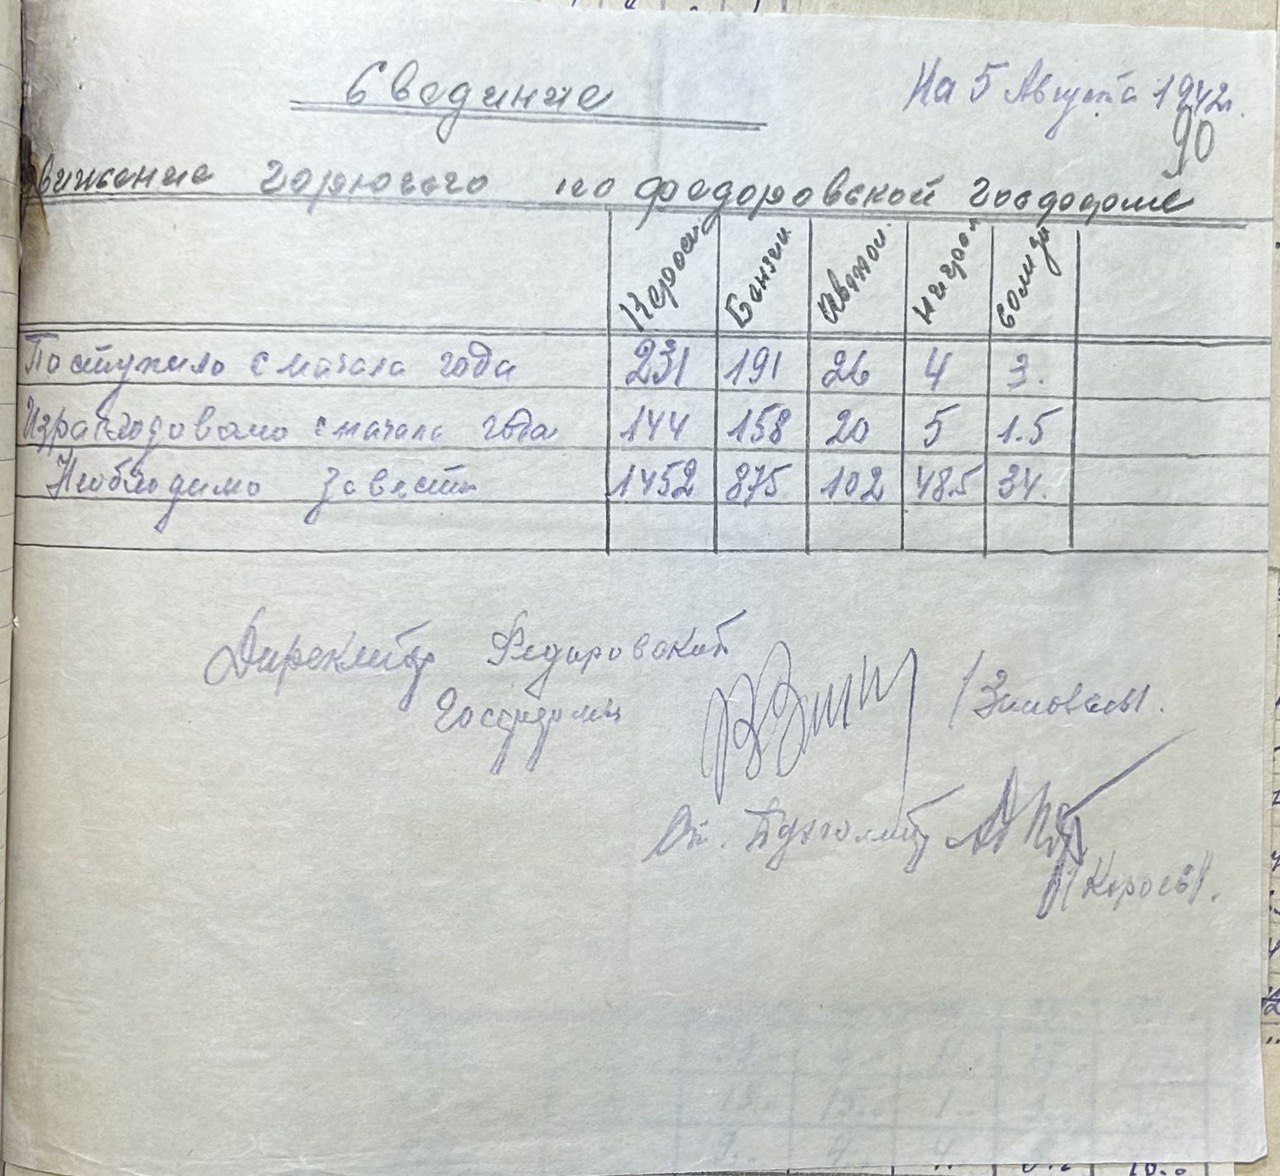 Сведение
На 5 Августа 1942г.
90
движение горючего по федоровской госдороме
Керосин Бензин Автол нигрол солидол
Поступило с начала года 231 191 26 4 3.
Израсходовано с начала года 144 158 20 5 1.5
Необходимо завести 1452 875 102 485 34.
Директор Федоровской
/Зиновьев/.
Бухгалтер